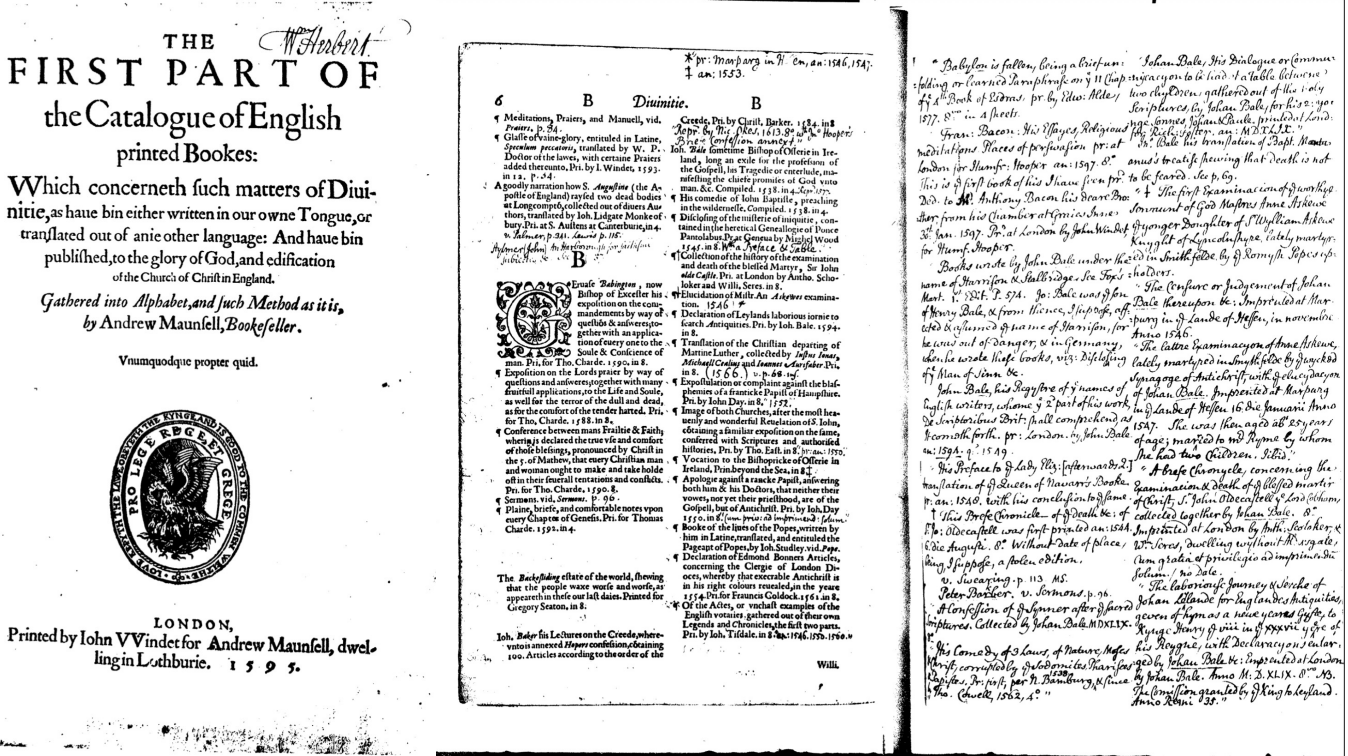 W. Herbert.
THE
FIRST PART OF
the Catalogue of English
printed Bookes:
Which concerneth such matters of Diui-
nitie, as haue bin either written in our owne Tongue, or
translated out of anie other language: And haue bin
published, to the glory of God, and edification
of the Church of Christ in England.
Gathered into Alphabet, and such Method as it is,
by Andrew Maunsell, Bookeseller.
Vnumquodque propter quid.
PRO LEGE REGE ET GREGE
LONDON,
Printed by Iohn VVindet for Andrew Maunsell, dwel-
ling in Lothburie. 1595.
pr: Marparg in H en, an: 1546, 1547.
‡ an: 1553.
6 B Diuinitie. B
¶ Meditations, Praiers, and Manuell, vid.
Praiers, p. 84.
¶ Glasse of vaine-glory, entituled in Latine,
Speculum peccatoris, translated by W. P.
Doctor of the lawes, with certaine Praiers
added thereunto, Pri. by I. Windet, 1593.
in 12. p. 54.
A goodly narration how S. Augustine (the A-
postle of England) raysed two dead bodies
at Longcomptō, collected out of diuers Au-
thors, translated by Ioh. Lidgate Monke of
bury. Pri. at S. Austens at Canterburie, in 4
v. Palmer, p. Lewis p. 115.
B
GEruase Babington, now
Bishop of Excester his
exposition on the com-
mandements by way of
questiōs & answeres, to-
gether with an applica-
tion of euery one to the
Soule & Conscience of
man. Pri. for Tho. Charde. 1590. in 8.
¶ Exposition on the Lords praier by way of
questions and answeres, together with many
fruitfull applications, to the Life and Soule,
as well for the terror of the dull and dead,
as for the comfort of the tender harted. Pri.
for Tho, Charde. 1588. in 8.
¶ Conference between mans Frailtie & Faith;
wherin is declared the true vse and comfort
of those blessings, pronounced by Christ in
the 5. of Mathew, that euery Christian man
and woman ought to make and take holde
of in their seuerall tentations and conflicts.
Pri. for Tho. Charde. 1590. 8.
¶ Sermons. vid. Sermons. p. 96.
¶ Plaine, briefe, and comfortable notes vpon
euery Chapter of Genesis. Pri. for Thomas
Charde. 1592. in 4
The Backesliding estate of the world, shewing
that the people waxe worse and worse, as
appeareth in these our last daies. Printed for
Gregory Seaton, in 8.
Ioh. Baker his Lectures on the Creede, where-
vnto is annexed Hopers confession, cōtaining
100. Articles according to the order of the
Creede, Pri. by Christ. Barker. 1584. in 8
Repr. by Nic Okes, 1613. 8° Hoopers
Brief Confession annext.
Ioh. Bale sometime Bishop of Osserie in Ire-
land, long an exile for the profession of
the Gospell, his Tragedie or enterlude, ma-
nifesting the chiefe promises of God vnto
man. &c. Compiled. 1538. in 4
¶ His comedie of Iohn Baptiste, preaching
in the wildernesse. Compiled. 1538. in 4.
¶ Disclosing of the misterie of iniquitie, con-
tained in the heretical Genealogie of Ponce
Pantolabus. Pr. at Geneua by Mighel Wood
1545. in 8. Wth a Preface & Table.
¶ Collection of the history of the examination
and death of the blessed Martyr, Sir Iohn
olde Castle. Pri. at London by Antho. Scho-
loker and Willi, Seres. in 8.
¶ Elucidation of Mistr. An Askewes examina-
tion. 1546 ‡
¶ Declaration of Leylands laborious iornie to
search Antiquities. Pri. by Ioh. Bale. 1594.
in 8.
¶ Translation of the Christian departing of
Martine Luther, collected by Iustus Ionas,
Michaell Cealius and Ioannes Aurifaber. Pri.
in 8. (1566.) v. p. 68.
¶ Expostulation or complaint against the blas-
phemies of a franticke Papist of Hampshire.
Pri. by Iohn Day. in 8. 1552.
¶ Image of both Churches, after the most hea-
uenly and wonderful Reuelation of S. Iohn,
cōtaining a familiar exposition on the same,
conferred with Scriptures and authorised
histories, Pri. by Tho. East. in 8. pr: an: 1550.
¶ Vocation to the Bishopricke of Osserie in
Ireland, Prin. beyond the Sea, in 8 ‡
¶ Apologie against a rancke Papist, answering
both him & his Doctors, that neither their
vowes, not yet their priesthood, are of the
Gospell, but of Antichrist. Pri. by Ioh. Day
1550. in 8. (cum priv: ad imprimend: solum
¶ Booke of the liues of the Popes, written by
him in Latine, translated, and entituled the
Pageant of Popes, by Ioh. Studley. vid. Pope.
¶ Declaration of Edmond Bonners Articles,
concerning the Clergie of London Di-
oces, whereby that execrable Antichrist is
in his right colours reuealed, in the yeare
1554. Pri. for Frauncis Coldock. 1561. in 8.
Of the Actes, or vnchast examples of the
English votaries, gathered out of their own
Legends and Chronicles, the first two parts.
Pri. by Ioh. Tisdale. in 8 an. 1546. 1550. 1560.
Willi.
"Babylon is fallen, being a brief un:
:folding or learned Paraphrase on ye 11 Chap:
of ye 4th Book of Esdras. pr. by Edw: Alde,
1577. 8vo in 4 sheets.
Fran: Bacon: His Essayes, Religious
meditations. Places of perswasion pr: at
London for Humfr: Hooper an: 1597. 8°
This is ye first book of his I have seen pr:
Ded. to Mr. Anthony Bacon his deare Bro:
ther from his Chamber at Graies Inn
30th Jan. 1597. Pr. at London by John Windet
for Humf. Hooper.
Books wrote by John Bale under the
name of Harrison & Stalbridge. See Fox's
Mart. 1. Edit. P. 574. Jo: Bale was ye son
of Henry Bale, & from thence, I suppose, aff:
ected & assumed ye name of Harrison, for
he was out of danger, & in Germany,
when he wrote these books, viz: Disclosing
of ye Man of Sinn &c.
John Bale, his Regystre of ye names of
English writers, whome ye 2 part of his work,
De Scriptoribus Brit: shall comprehend, as
it cometh forth. pr: London. by John Bale
an: 1549.
His Preface to ye Lady Eliz: [afterwards Q:]
translation of ye Queen of Navarr's Booke
pr. an: 1548, with his conclusion to ye same.
† This Brefe Chronicle of ye Death &c: of
Sr Jo: Oldecastell was first printed an: 1544.
6. die Augusti. 8° Without date of place,
being, I suppose, a stolen edition.
v. Swearing. p. 113 MS.
Peter Barker. v. Sermons. p. 96.
A Confession of ye Synner after ye sacred
Scriptures. Collected by Johan Bale MDXLIX.
His Comedy of 3 Laws, of Nature, Moses
& Christ, corrupted by ye Sodomites Pharisees
& Papistes. Pr: first, per N. Bamburg, 1538 & since
Tho. Colwell, 1562, 4°"
"Johan Bale, His Dialogue or Commu:
nycacyon to be had at a table betwene
two chyldren, gathered out of the Holy
Scriptures, by Johan Bale, for his 2: yo:
nge sonnes, Johan & Paule, printed at Lond:
for Rich: Foster. an: MDXLIX."
Jn. Bale his translation of Bapt. Mantu:
anus's treatise shewing that Death is not
to be feared. See p. 69.
"‡ The first Examinacion of ye worthye
Servaunt of God Mastres Anne Askewe
ye yonger Doughter of Sr Wyllyam Askewe
Knyght of Lyncolnshyre, lately martyr:
:ed in Smithfelde, by ye Romysh Popes up:
:holders.
"The Censure or Judgement of Johan
Bale thereupon &c: Imprented at Mar:
purg in ye Lande of Hessen, in novembre
Anno 1546.
"The lattre Examinacyon of Anne Askewe,
lately martyred in Smythfelde by ye wycked
Synagoge of Antichrist, with ye elucydacyon
of Johan Bale. Imprented at Marparg
in ye Lande of Hessen 16. die Januarii Anno
1547. She was then aged ab: 25 years
of age; married to Mr Kyme by whom
she had two Children. Ibid."
"A brefe Chronycle, concerning the
Examinacion & death of ye blessed martir
of Christ, Sr. John Oldecastell ye Lord Cobham,
collected together by Johan Bale. 8°
Imprinted at London by Anth: Scoloker, &
Wm. Seres, dwelling wythout Alds:gate,
Cum gratia & privilegio ad imprimendū
solum. / no Date.
"The laboriouse Journey & Serche of
Johan Leylande for Englandes Antiquities,
geven of hym as a newe yeares Gyfte, to
Kynge Henry ye viii in ye xxxvii yeare of
his Reygne, with Declaracyons enlar:
ged by Johan Bale &c: Emprented at London
by Johan Bale. Anno M: D. XLIX. 8vo NB.
The Comission granted by ye King to Leyland.
Anno Regni 35."